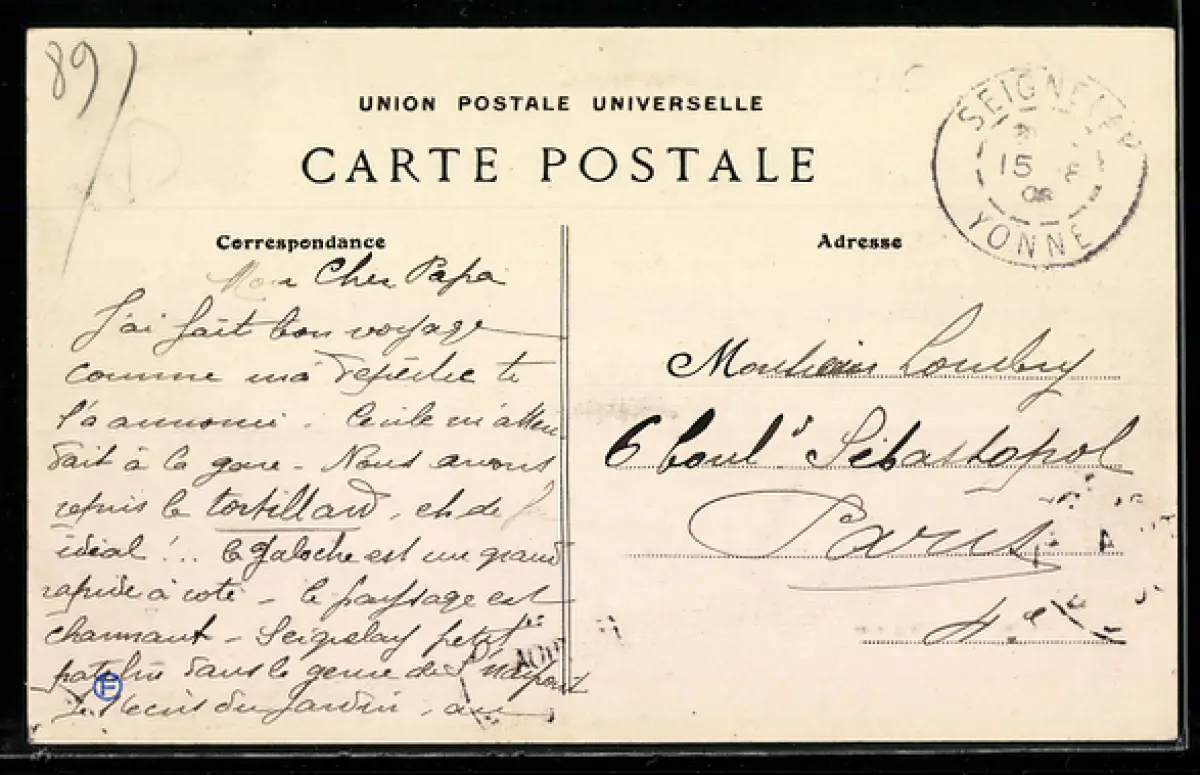 89
UNION POSTALE UNIVERSELLE
CARTE POSTALE
SEIGNELAY
15
YONNE
Correspondance
Adresse
Mon Cher Papa
J'ai fait bon voyage
comme ma dépêche te
l'a annoncé. Cécile m'atten
dait à la gare - Nous avons
repris le tortillard, et de
idéal !.. le galoche est un grand
rapide à coté - le paysage est
charmant - Seignelay petit
dans le genre de
du jardin, au
Monsieur Loubry
6 boul.d Sébastopol
Paris
4.e
AOUT